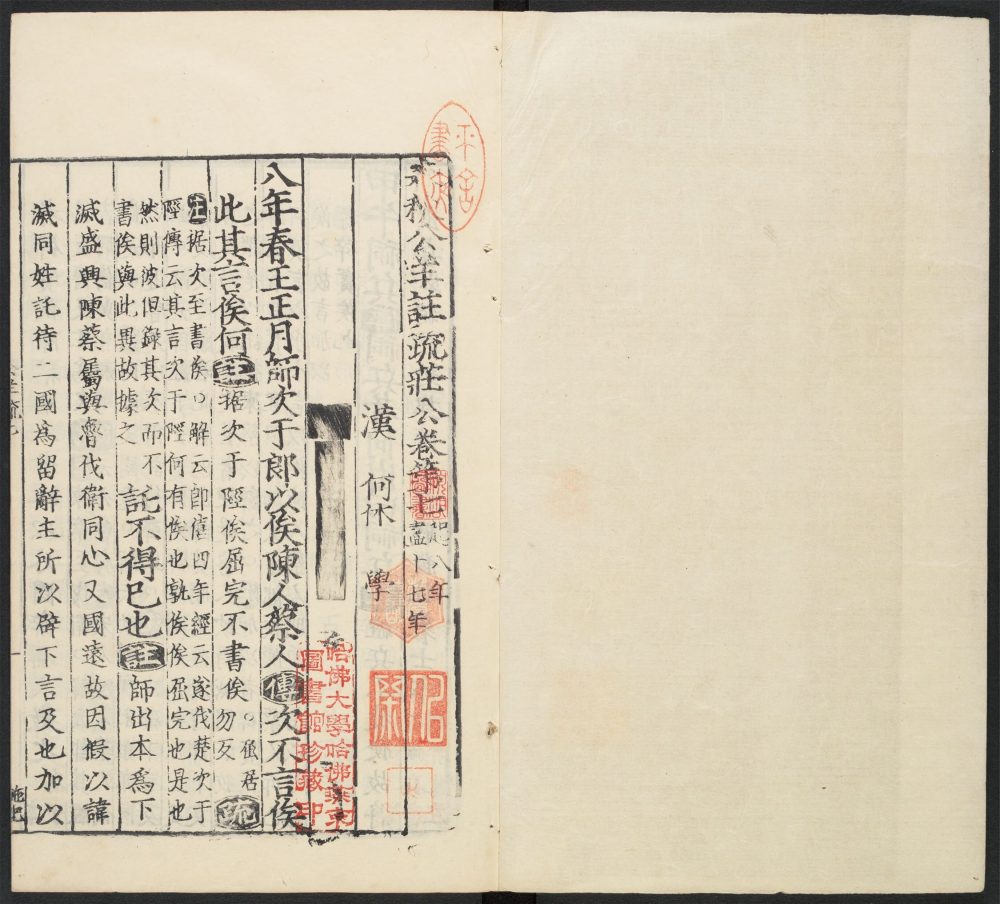 春秋公羊註疏莊公卷第七 起八年 盡十七年
漢 何休 學
八年春王正月師次于郎以俟陳人蔡人傳次不言俟
此其言俟何註据次于陘俟屈完不書俟 疏
註据次至書俟○解云即僖四年經云遂伐楚次于
陘傳云其言次于陘何有俟也孰俟俟屈完也是也
然則彼但錄其次而不
書俟與此異故據之
託不得已也註師出本爲下
滅盛興陳蔡屬與魯伐衛同心又國遠故因假以諱
滅同姓託待二國爲留辭主所以辟下言及也加以
哈佛大學哈佛燕京
圖書館珍藏印